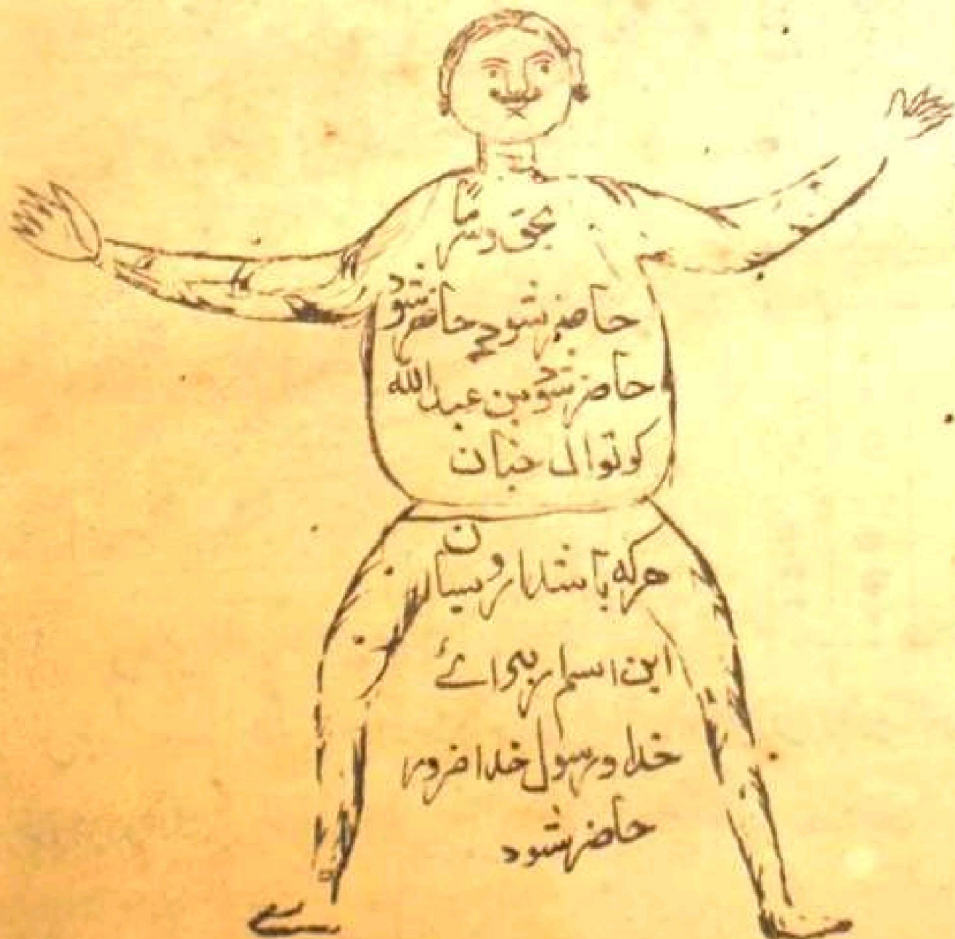 بحق
حاضر شود حاضر شود
حاضر شود بن عبدالله
کوتوال جنان
هرکه باشد
این اسم برائے
خدا و رسول خدا ضرور
حاضر شود